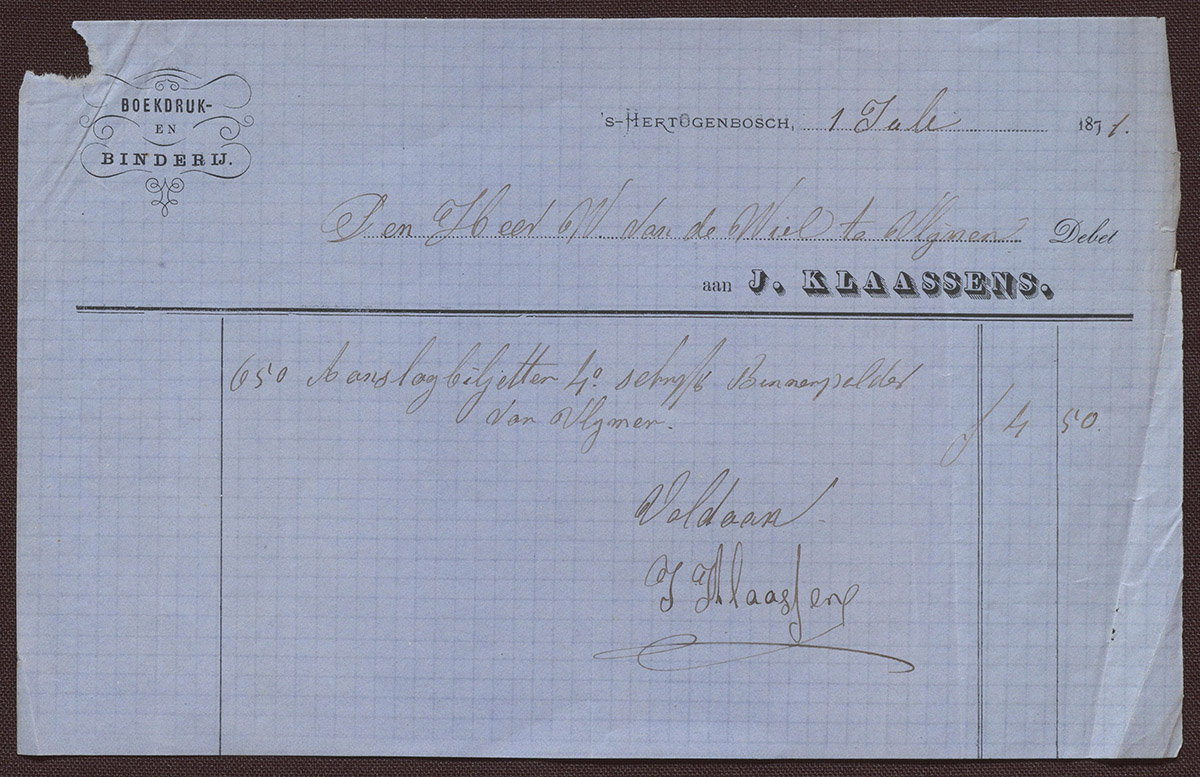 BOEKDRUK-
EN
BINDERIJ.
's-HERTOGENBOSCH, 1 Juli 1871.
Den Heer W. van de Wiel te Vlymen Debet
aan J. KLAASSENS.
650 Aanslagbiljetten 4º schryfp Binnenpolder
van Vlymen. f 4 50.
Voldaan
J Klaassens